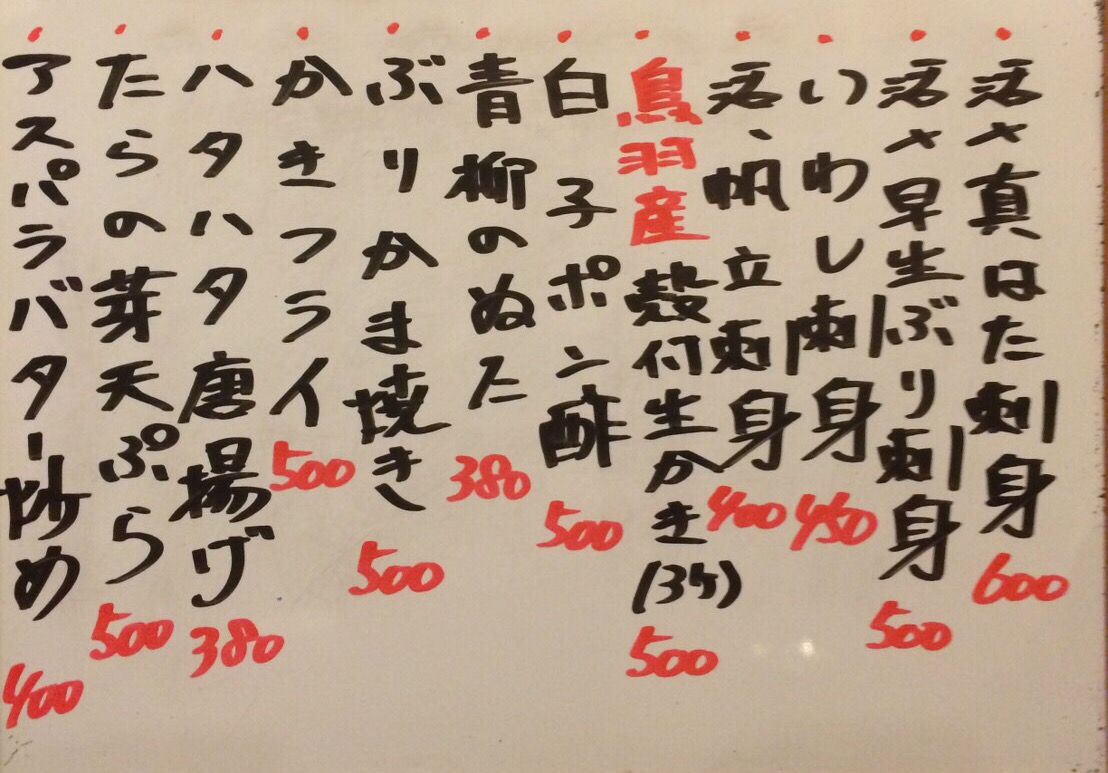 活〆真はた刺身 600
活〆早生ぶり刺身 500
いわし刺身 450
活、帆立刺身 400
鳥羽産殻付生かき(3ケ) 500
白子ポン酢 500
青柳のぬた 380
ぶりかま焼き 500
かきフライ 500
ハタハタ唐揚げ 380
たらの芽天ぷら 500
アスパラバター炒め 400